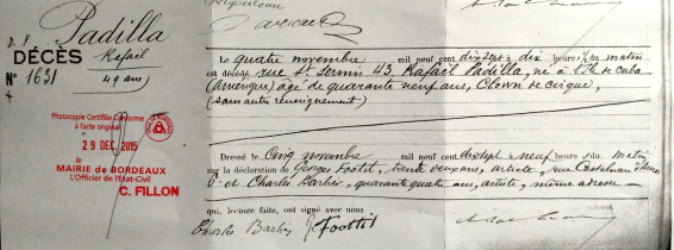 D. V. Padilla
DÉCÈS Rafaël
N° 1631 49 ans)
Photocopie Certifiée Conforme
à l'acte original
29 DEC. 2015
MAIRIE DE BORDEAUX
L'Officier de l'Etat-Civil
C. FILLON
Le quatre novembre mil neuf cent dix sept à dix heures du matin
est décédé, rue St Sernin 43, Rafaël Padilla, né à l'Ile de Cuba
(Amérique) âgé de quarante neuf ans, Clown de cirque,
(sans autre renseignement)
Dressé le Cinq novembre mil neuf cent dix sept à neuf heures du matin
sur la déclaration de Georges Foottit, trente deux ans, artiste, rue Castelnau d'Auros
et Charles Barbier, quarante quatre ans, artiste, même adresse
qui, lecture faite, ont signé avec nous
Charles Barbier G. Foottit